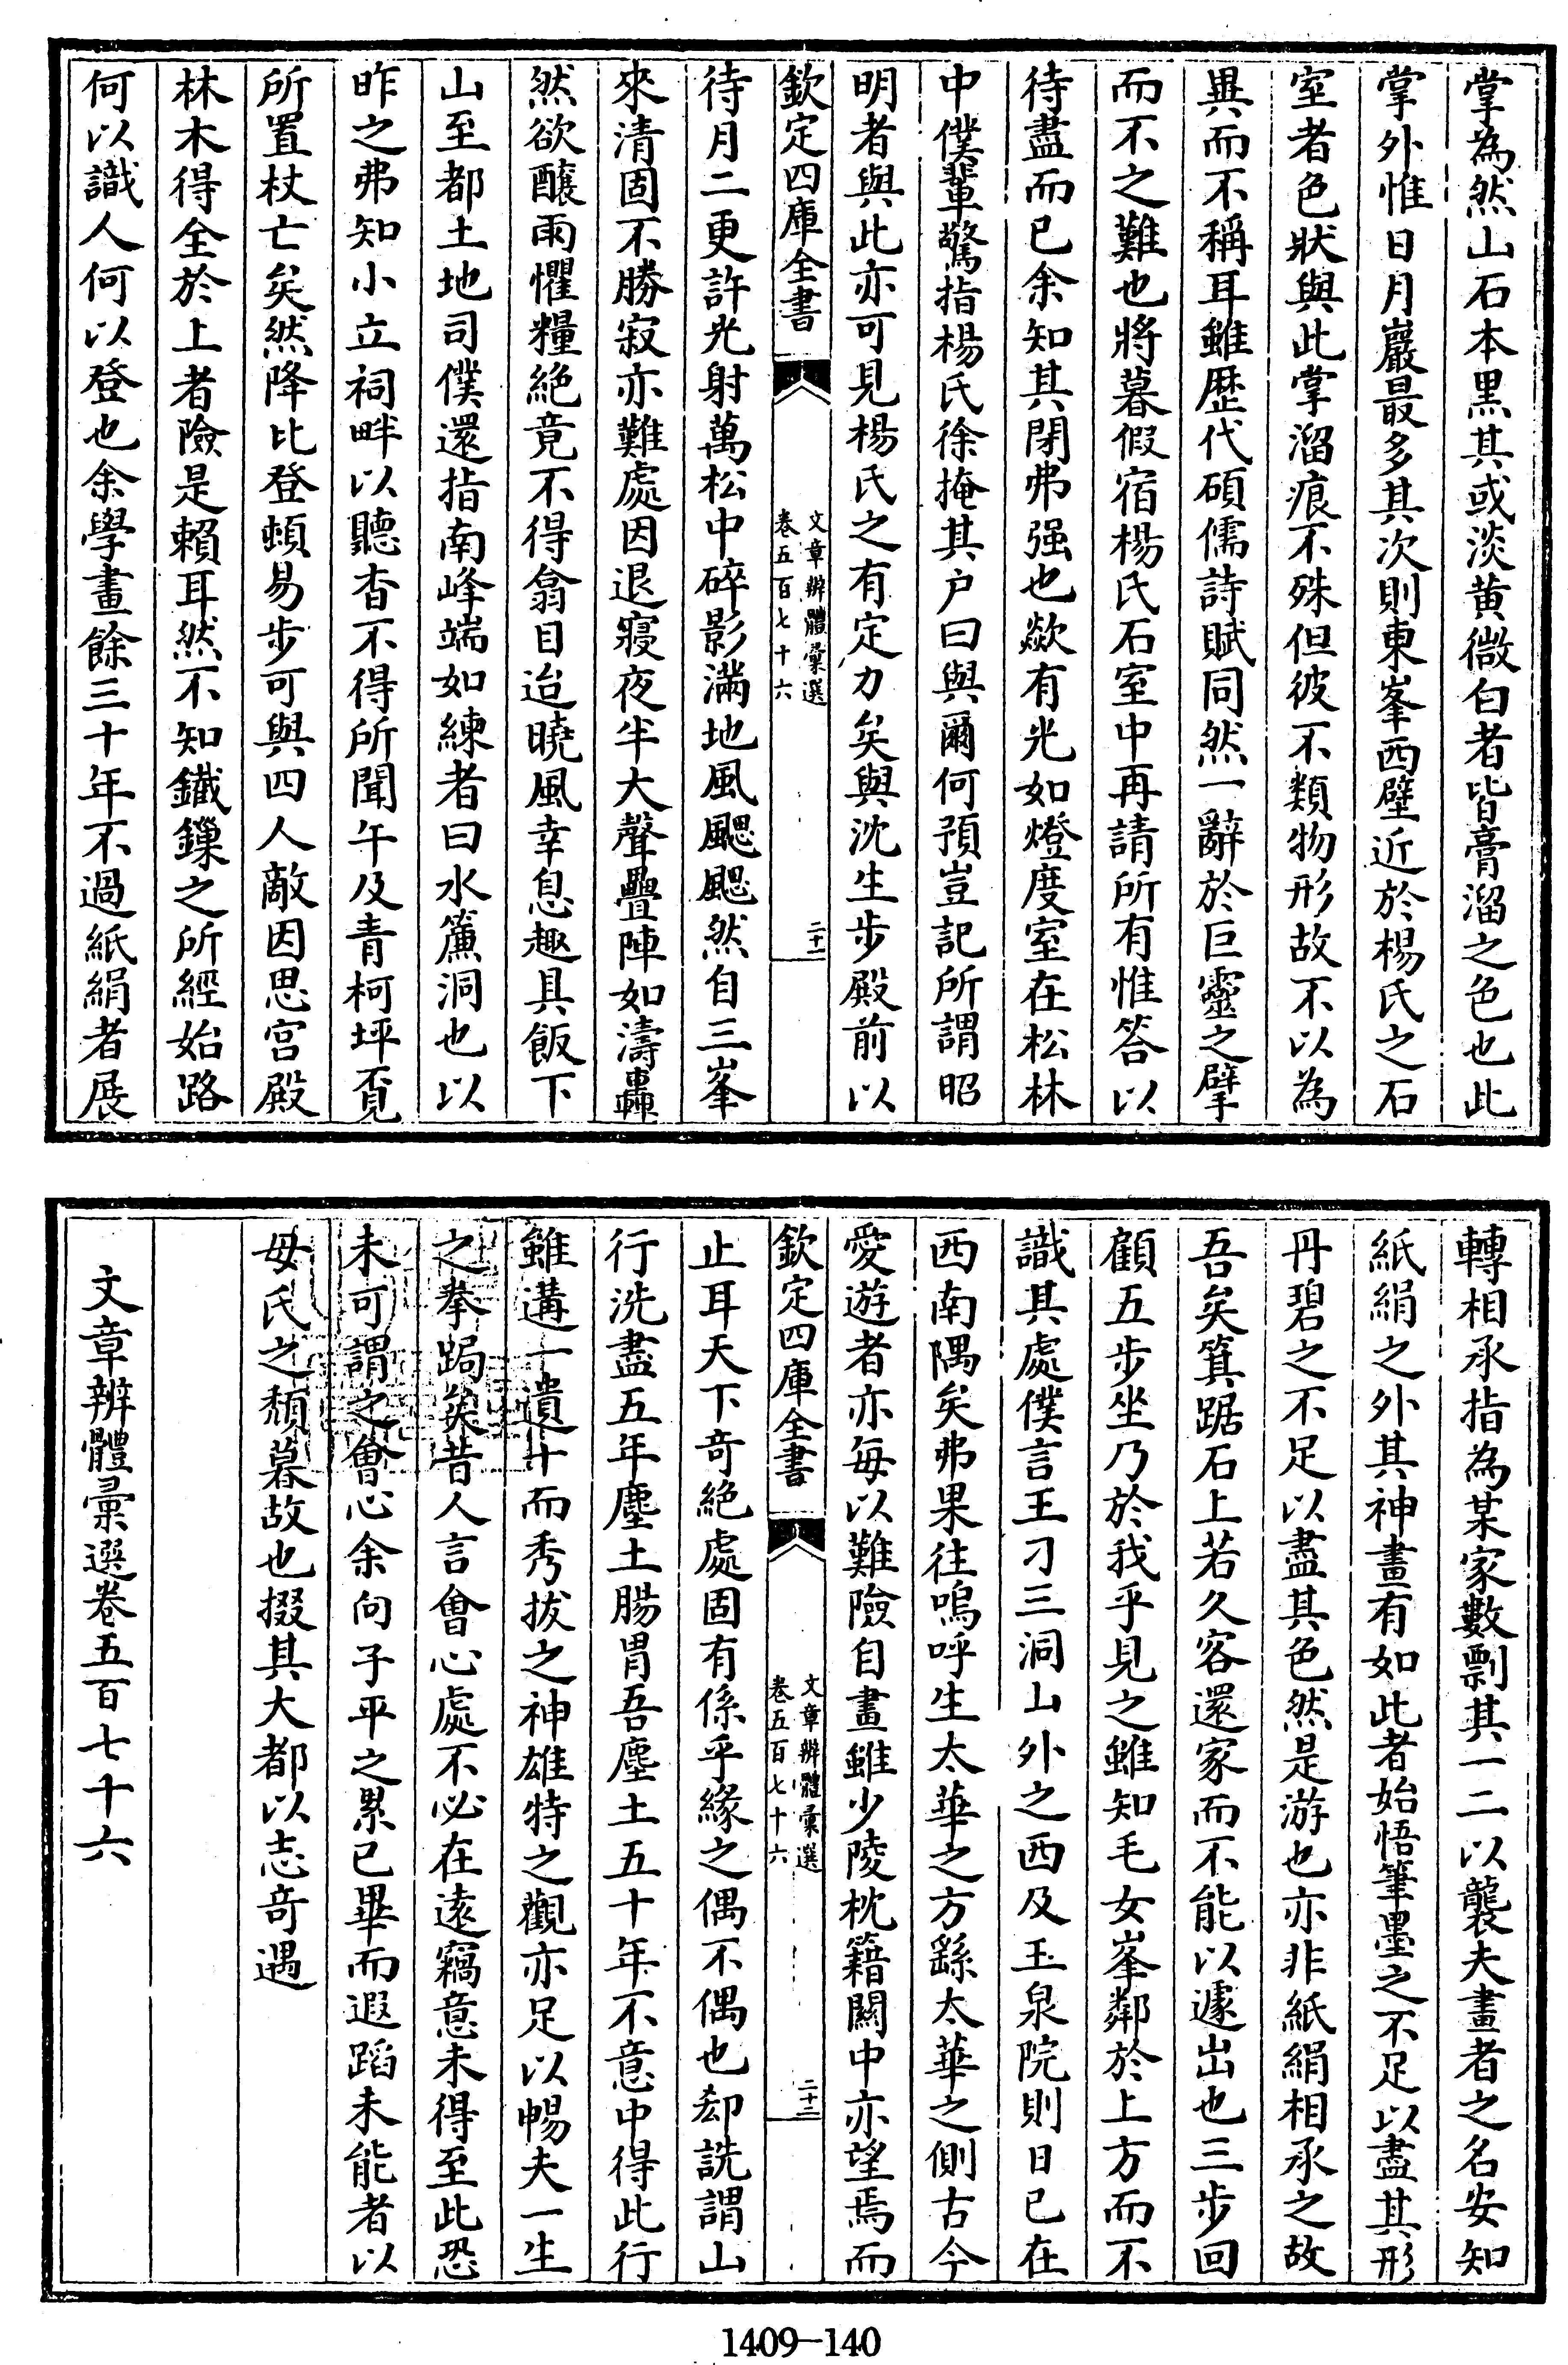 掌為然山石本黒其或淡黄微白者皆膏溜之色也此
掌外惟日月巖最多其次則東峯西壁近於楊氏之石
室者色狀與此掌溜痕不殊但彼不類物形故不以為
異而不稱耳雖歴代碩儒詩賦同然一辭於巨靈之擘
而不之難也將暮假宿楊氏石室中再請所有惟答以
待盡而已余知其閉弗强也歘有光如燈度室在松林
中僕輩驚指楊氏徐掩其户曰與爾何預豈記所謂昭
明者與此亦可見楊氏之有定力矣與沈生步殿前以
欽定四庫全書
文章辨體彙選
卷五百七十六
二十一
待月二更許光射萬松中碎影滿地風颸颸然自三峯
來清固不勝寂亦難處因退寢夜半大聲疊陣如濤轟
然欲釀雨懼糧絶竟不得翕目迨曉風幸息趣具飯下
山至都土地司僕還指南峰端如練者曰水簾洞也以
昨之弗知小立祠畔以聽杳不得所聞午及青柯坪覔
所置杖亡矣然降比登頓易步可與四人敵因思宫殿
林木得全於上者險是賴耳然不知鐵鏁之所經始路
何以識人何以登也余學畫餘三十年不過紙絹者展
轉相承指為某家數剽其一二以襲夫畫者之名安知
紙絹之外其神畫有如此者始悟筆墨之不足以盡其形
丹碧之不足以盡其色然是游也亦非紙絹相承之故
吾矣箕踞石上若久客還家而不能以遽出也三步回
顧五步坐乃於我乎見之雖知毛女峯鄰於上方而不
識其處僕言王刁三洞山外之西及玉泉院則日已在
西南隅矣弗果往嗚呼生太華之方繇太華之側古今
愛遊者亦每以難險自畫雖少陵枕籍闗中亦望焉而
欽定四庫全書
文章辨體彙選
卷五百七十六
二十二
止耳天下竒絶處固有係乎緣之偶不偶也却詵謂山
行洗盡五年塵土腸胃吾塵土五十年不意中得此行
雖遘一遺十而秀拔之神雄特之觀亦足以暢夫一生
之拳跼矣昔人言會心處不必在遠竊意未得至此恐
未可謂之會心余向子平之累已畢而遐蹈未能者以
母氏之頹暮故也掇其大都以志竒遇
文章辨體彙選卷五百七十六
1409-140